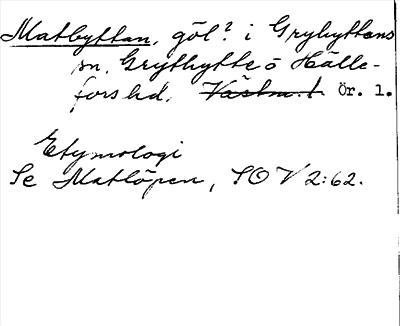 Matbyttan, göl? i Grythyttans
sn. Grythytte o Hälle-
fors hd. Västm. l. Ör. l.
Etymologi
Se Matlöpen, SOV 2:62.